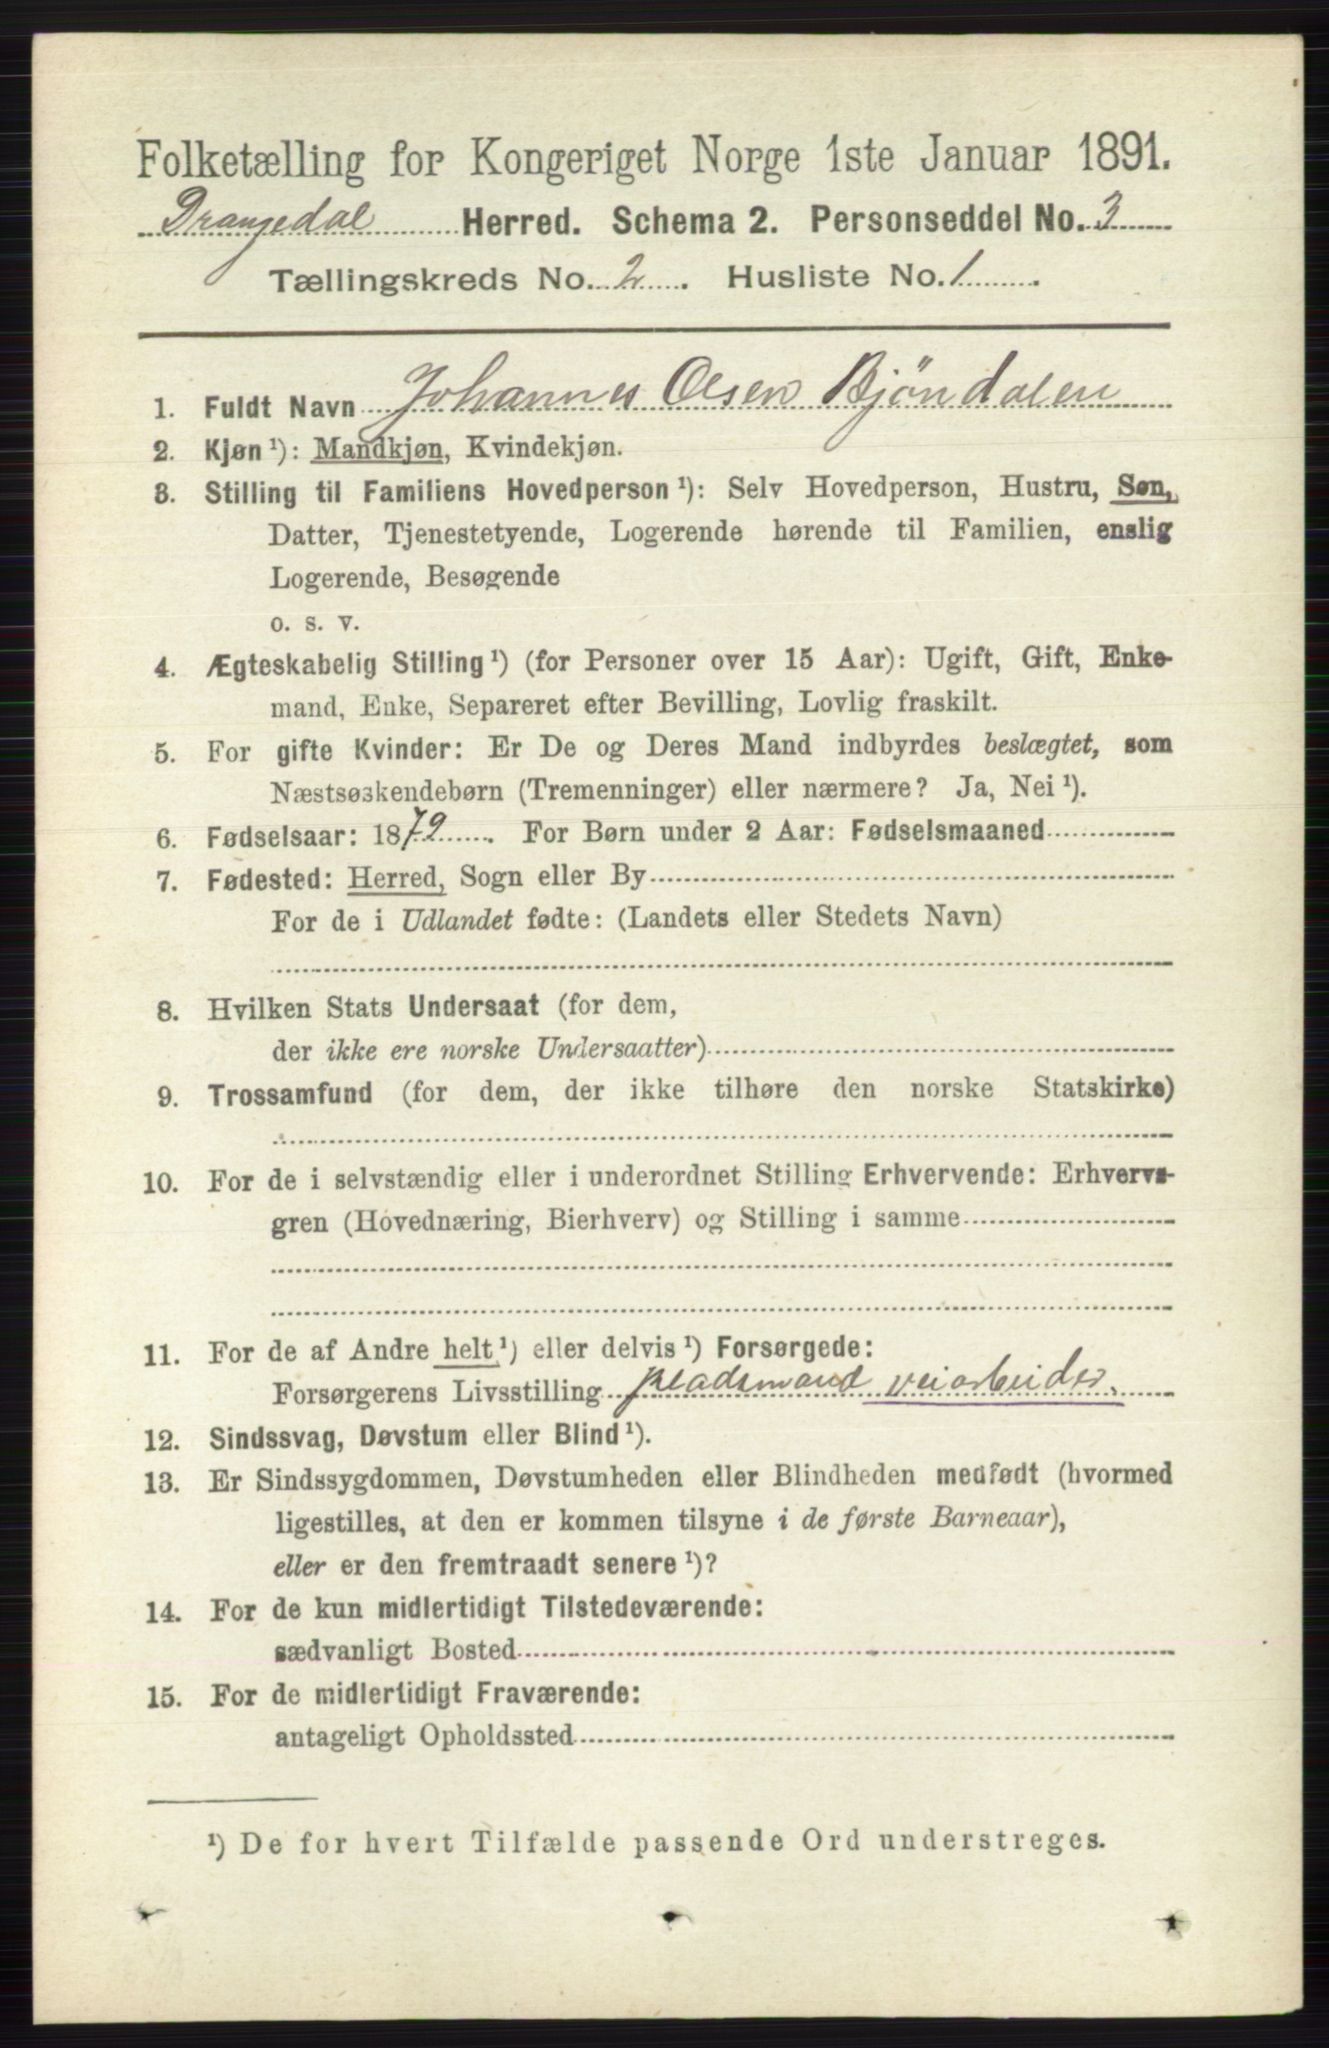 Folketælling for Kongeriget Norge 1ste Januar 1891.
Drangedal Herred. Schema 2. Personseddel No. 3
Tællingskreds No. 2. Husliste No. 1.
1. Fuldt Navn Johannes Olsen Bjöndalen
2. Kjøn¹): Mandkjøn, Kvindekjøn.
3. Stilling til Familiens Hovedperson¹): Selv Hovedperson, Hustru, Søn,
Datter, Tjenestetyende, Logerende hørende til Familien, enslig
Logerende, Besøgende
o. s. v.
4. Ægteskabelig Stilling¹) (for Personer over 15 Aar): Ugift, Gift, Enke-
mand, Enke, Separeret efter Bevilling, Lovlig fraskilt.
5. For gifte Kvinder: Er De og Deres Mand indbyrdes beslægtet, som
Næstsøskendebørn (Tremenninger) eller nærmere? Ja, Nei¹).
6. Fødselsaar: 1872. For Børn under 2 Aar: Fødselsmaaned
7. Fødested: Herred, Sogn eller By
For de i Udlandet fødte: (Landets eller Stedets Navn)
8. Hvilken Stats Undersaat (for dem,
der ikke ere norske Undersaatter)
9. Trossamfund (for dem, der ikke tilhøre den norske Statskirke)
10. For de i selvstændig eller i underordnet Stilling Erhvervende: Erhvervs-
gren (Hovednæring, Bierhverv) og Stilling i samme
11. For de af Andre helt¹) eller delvis¹) Forsørgede:
Forsørgerens Livsstilling pladsmand veiarbeider.
12. Sindssvag, Døvstum eller Blind¹).
13. Er Sindssygdommen, Døvstumheden eller Blindheden medfødt (hvormed
ligestilles, at den er kommen tilsyne i de første Barneaar),
eller er den fremtraadt senere¹)?
14. For de kun midlertidigt Tilstedeværende:
sædvanligt Bosted
15. For de midlertidigt Fraværende:
antageligt Opholdssted
¹) De for hvert Tilfælde passende Ord understreges.